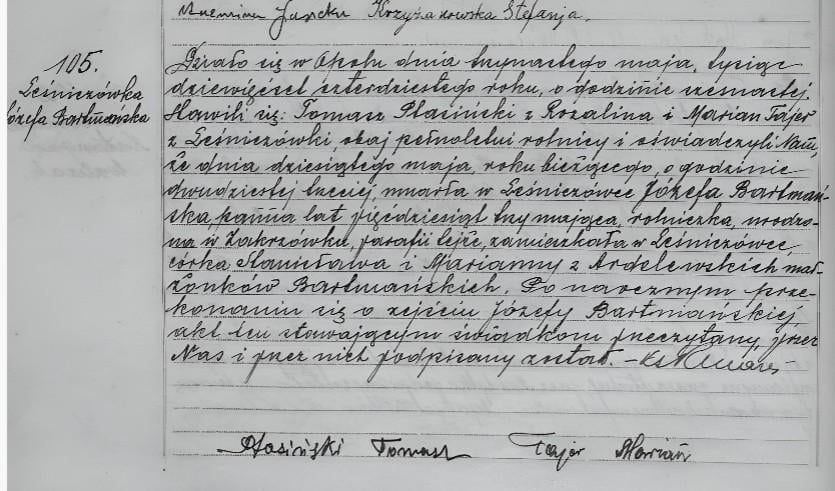 Krzyżanowska Stefanja.
105.
Leśniczówka
Józefa Bartmańska
Działo się w Opolu dnia trzynastego maja, tysiąc
dziewięćset czterdziestego roku, o godzinie szesnastej.
Stawili się: Tomasz Stasiński z Rozalina i Marian Fajer
z Leśniczówki, obaj pełnoletni rolnicy i oświadczyli Nam,
że dnia, dziesiątego maja, roku bieżącego, o godzinie
dwudziestej trzeciej, umarła w Leśniczówce Józefa Bartmań-
ska, panna lat pięćdziesiąt trzy mająca, rolniczka, urodzo-
na w Zakrzówku, parafii tejże, zamieszkała w Leśniczówce,
córka Stanisława i Marianny z Ardelewskich mał-
żonków Bartmańskich. Po naocznym prze-
konaniu się o zejściu Józefy Bartmańskiej,
akt ten stawającym świadkom przeczytany, przez
Nas i przez nich podpisany został. –
Stasiński Tomasz Fajer Marian